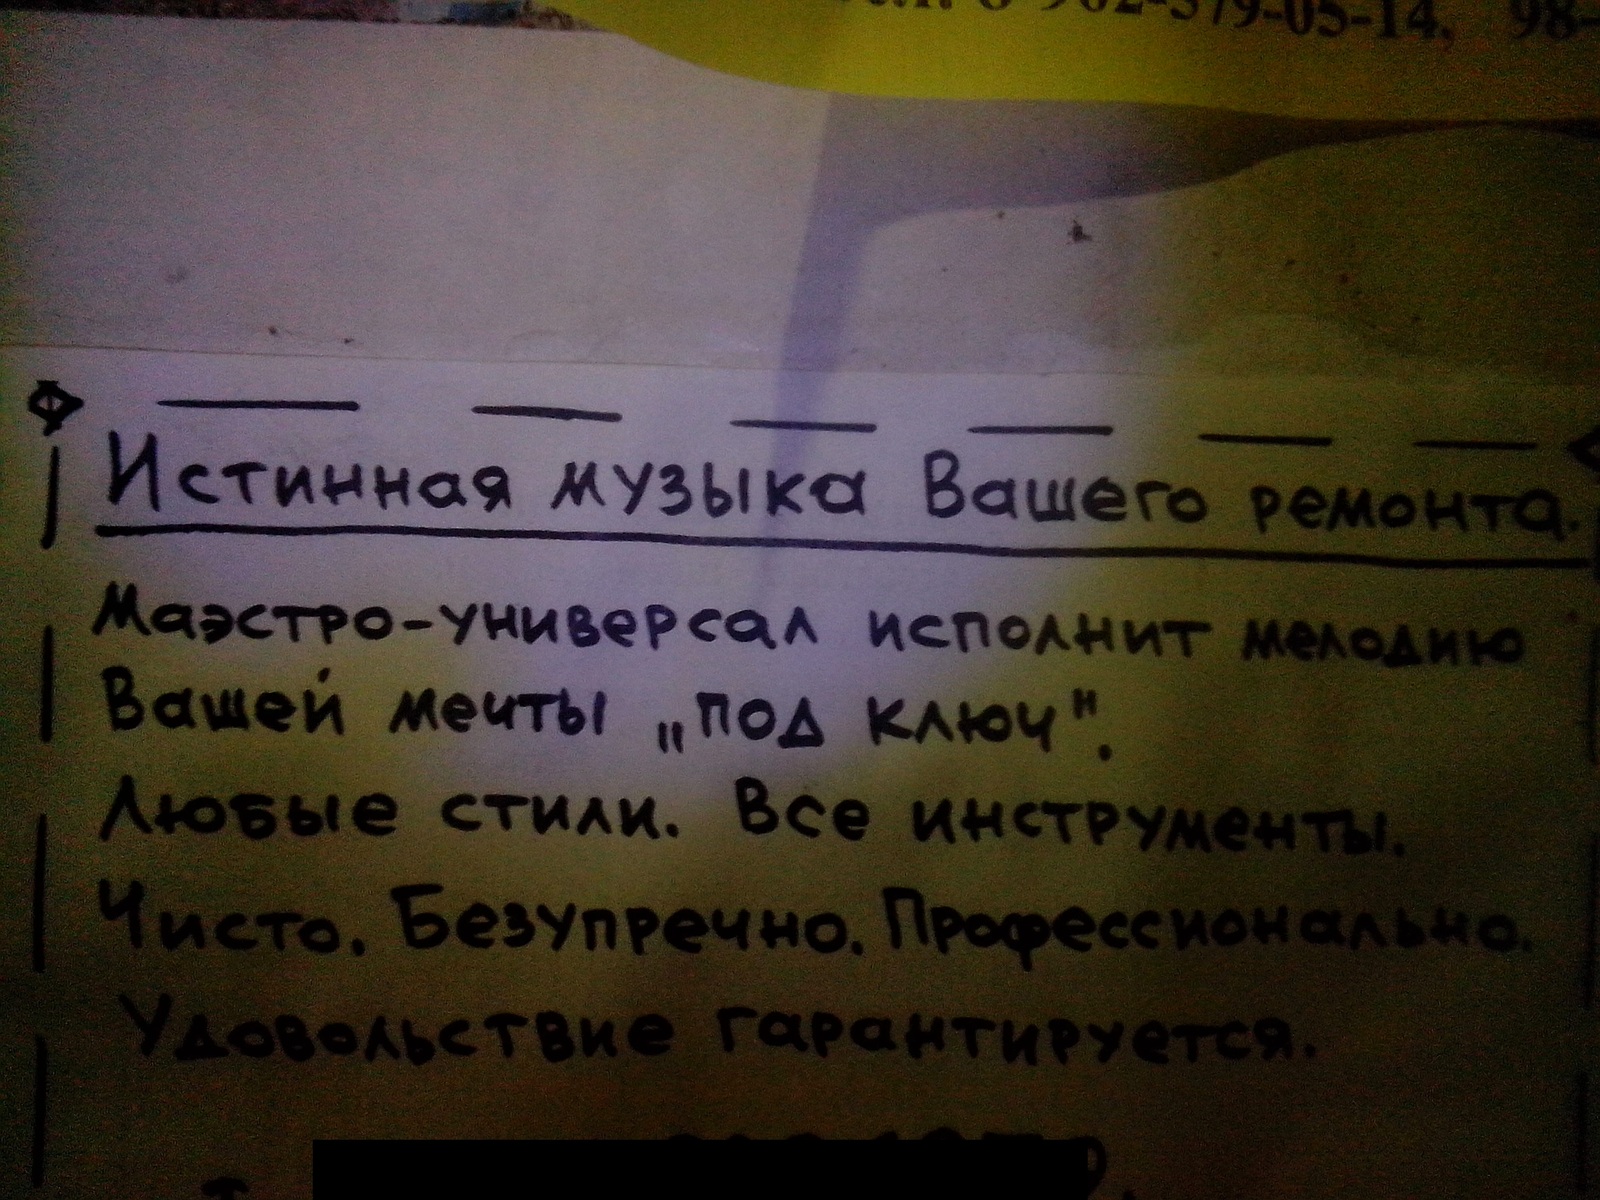 962-579-05-14, 98-
Истинная музыка Вашего ремонта.
Маэстро-универсал исполнит мелодию
Вашей мечты „под ключ".
Любые стили. Все инструменты.
Чисто. Безупречно. Профессионально.
Удовольствие гарантируется.